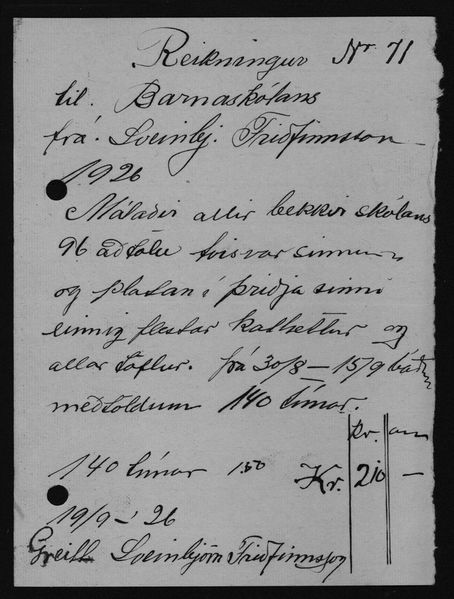 Reikningur Nr 71
til. Barnaskólans
frá. Sveinbj. Friðfinnsson
1926
Málaðir allir bekkir skólans
96 að tölu tvisvar sinnum
og platan í þriðja sinni
einnig flestar kathettur og
allar töflur. frá 30/8 – 15/9 báðum
meðtöldum 140 tímar.
kr. au
140 tímar 1.50 Kr. 210 –
19/9 – '26
Greitt Sveinbjörn Friðfinnsson